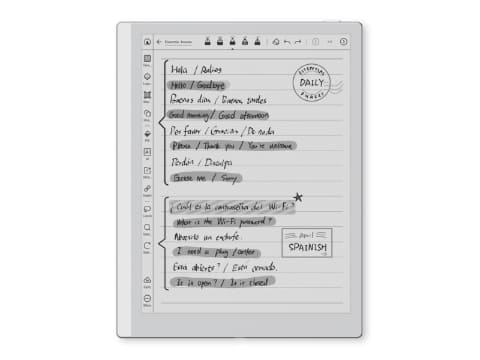 Essential Phrases
Hola / Adios
Hello / Goodbye
Buenos dias / Buenas tardes
Good morning / Good afternoon
Por favor / Gracias / De nada
Please / Thank you / You're welcome
Perdón / Disculpa
Excuse me / Sorry
ESSENTIAL
DAILY
PHRASES
¿Cuál es la contraseña del Wi-Fi?
What is the Wi-Fi password?
Necesito un enchufe.
I need a plug / outlet
Esta abierto? / Esta cerrado.
Is it open? / Is it closed
April
SPANISH